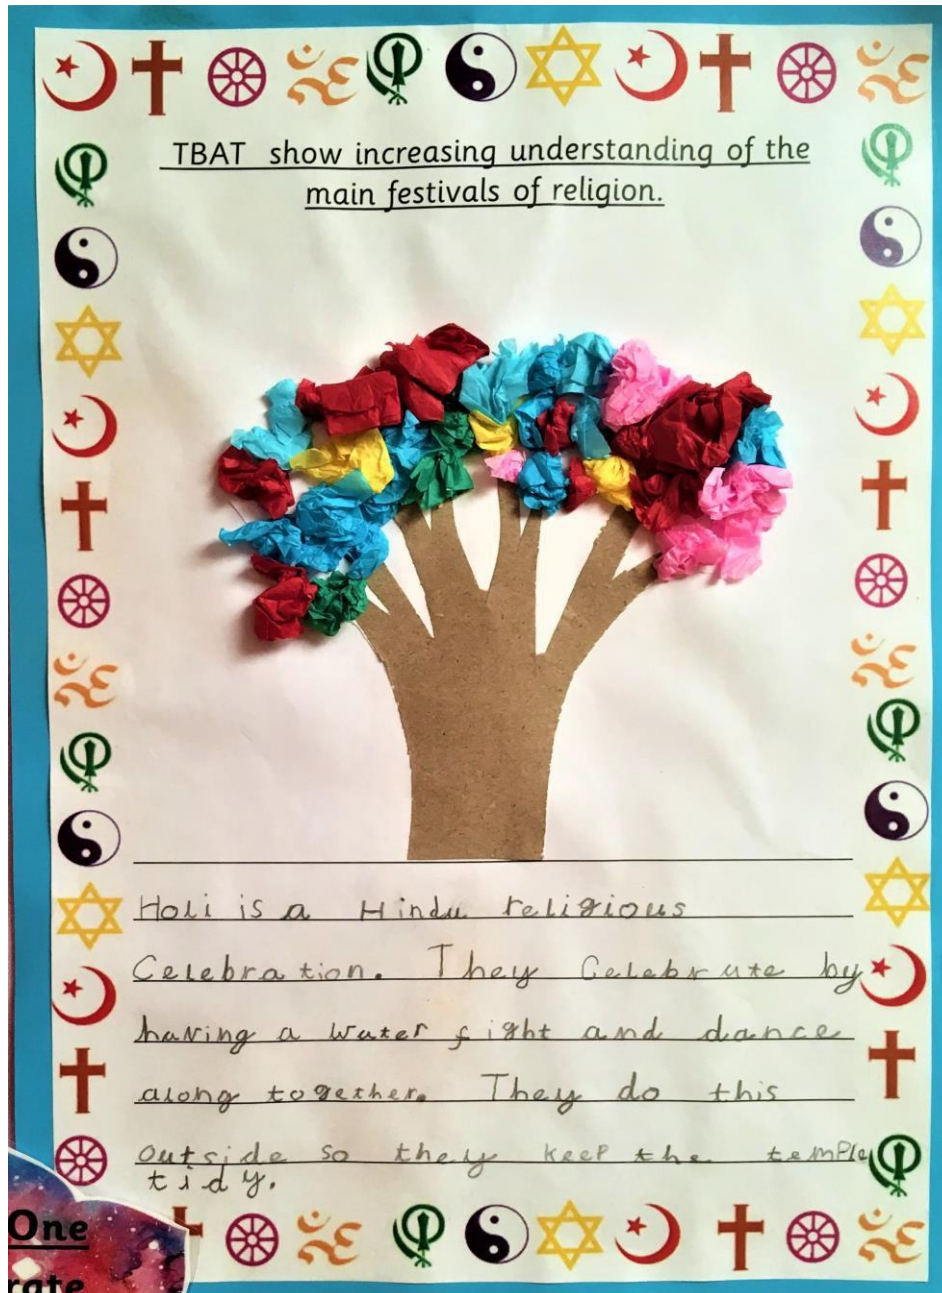 TBAT show increasing understanding of the
main festivals of religion.
Holi is a Hindu religious
Celebration. They Celebrate by
having a water fight and dance
along together. They do this
outside so they keep the temple
tidy.
One
rate